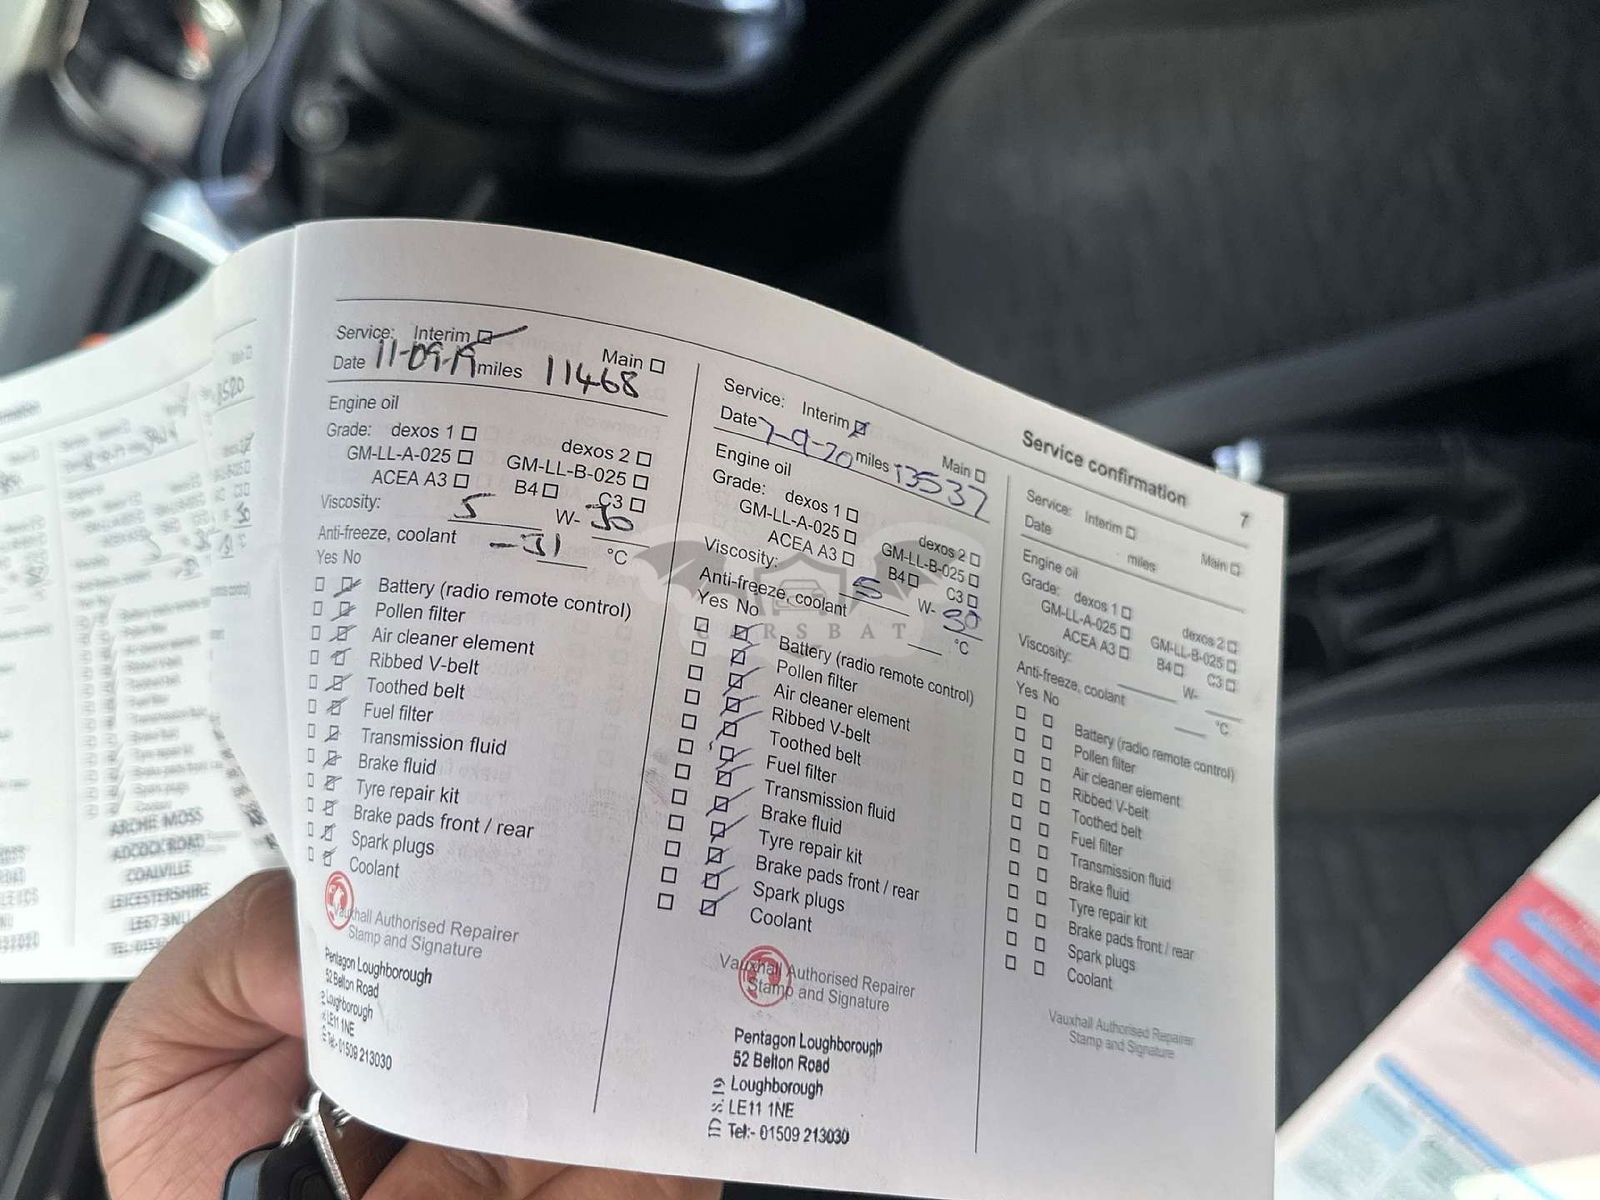 Service confirmation 7
Service: Interim Main
Date 11-09-19 miles 11468
Engine oil
Grade: dexos 1 dexos 2
GM-LL-A-025 GM-LL-B-025
ACEA A3 B4 C3
Viscosity: 5 W- 30
Anti-freeze, coolant -31 °C
Yes No
Battery (radio remote control)
Pollen filter
Air cleaner element
Ribbed V-belt
Toothed belt
Fuel filter
Transmission fluid
Brake fluid
Tyre repair kit
Brake pads front / rear
Spark plugs
Coolant
Vauxhall Authorised Repairer
Stamp and Signature
Pentagon Loughborough
52 Belton Road
Loughborough
LE11 1NE
Tel:- 01509 213030
Service: Interim Main
Date 7-9-20 miles 13537
Engine oil
Grade: dexos 1 dexos 2
GM-LL-A-025 GM-LL-B-025
ACEA A3 B4 C3
Viscosity: 5 W- 30
Anti-freeze, coolant °C
Yes No
Battery (radio remote control)
Pollen filter
Air cleaner element
Ribbed V-belt
Toothed belt
Fuel filter
Transmission fluid
Brake fluid
Tyre repair kit
Brake pads front / rear
Spark plugs
Coolant
Vauxhall Authorised Repairer
Stamp and Signature
Pentagon Loughborough
52 Belton Road
Loughborough
LE11 1NE
Tel:- 01509 213030
Service: Interim Main
Date miles
Engine oil
Grade: dexos 1 dexos 2
GM-LL-A-025 GM-LL-B-025
ACEA A3 B4 C3
Viscosity: W-
Anti-freeze, coolant °C
Yes No
Battery (radio remote control)
Pollen filter
Air cleaner element
Ribbed V-belt
Toothed belt
Fuel filter
Transmission fluid
Brake fluid
Tyre repair kit
Brake pads front / rear
Spark plugs
Coolant
Vauxhall Authorised Repairer
Stamp and Signature
ARCHIE MOSS
ADCOCK ROAD
COALVILLE
LEICESTERSHIRE
LE67 3NU
CARSBAT